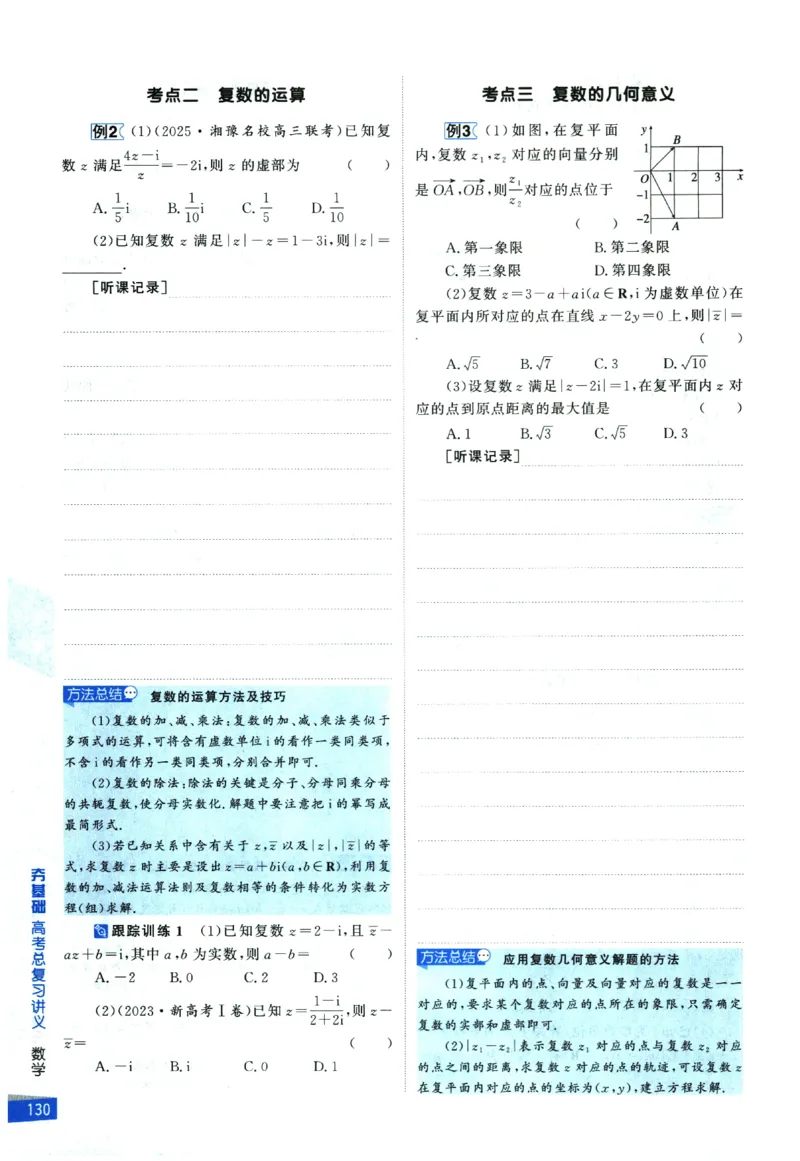 考点二 复数的运算
例2 (1)(2025·湘豫名校高三联考)已知复
数 z 满足\frac{4z-i}{z}=-2i,则 z 的虚部为 ( )
A. \frac{1}{5}i B. \frac{1}{10}i C. \frac{1}{5} D. \frac{1}{10}
(2)已知复数 z 满足|z|-z=1-3i,则|z|=
________.
[听课记录]
方法总结 复数的运算方法及技巧
(1)复数的加、减、乘法:复数的加、减、乘法类似于
多项式的运算,可将含有虚数单位 i 的看作一类同类项,
不含 i 的看作另一类同类项,分别合并即可.
(2)复数的除法:除法的关键是分子、分母同乘分母
的共轭复数,使分母实数化.解题中要注意把 i 的幂写成
最简形式.
(3)若已知关系中含有关于 z,\overline{z} 以及|z|,|\overline{z}|的等
式,求复数 z 时主要是设出 z=a+bi(a,b∈R),利用复
数的加、减法运算法则及复数相等的条件转化为实数方
程(组)求解.
跟踪训练 1 (1)已知复数 z=2-i,且 \overline{z}-
az+b=i,其中 a,b 为实数,则 a-b= ( )
A. -2 B. 0 C. 2 D. 3
(2)(2023·新高考Ⅰ卷)已知 z=\frac{1-i}{2+2i},则 z-
\overline{z}= ( )
A. -i B. i C. 0 D. 1
考点三 复数的几何意义
例3 (1)如图,在复平面
内,复数 z₁,z₂ 对应的向量分别
是\overrightarrow{OA},\overrightarrow{OB},则\frac{z₁}{z₂}对应的点位于
( )
y
1
B
O 1 2 3 x
-1
-2
A
A. 第一象限 B. 第二象限
C. 第三象限 D. 第四象限
(2)复数 z=3-a+ai(a∈R,i 为虚数单位)在
复平面内所对应的点在直线 x-2y=0 上,则|\overline{z}|=
( )
A. √5 B. √7 C. 3 D. √10
(3)设复数 z 满足|z-2i|=1,在复平面内 z 对
应的点到原点距离的最大值是 ( )
A. 1 B. √3 C. √5 D. 3
[听课记录]
方法总结 应用复数几何意义解题的方法
(1)复平面内的点、向量及向量对应的复数是一一
对应的,要求某个复数对应的点所在的象限,只需确定
复数的实部和虚部即可.
(2)|z₁-z₂|表示复数 z₁ 对应的点与复数 z₂ 对应
的点之间的距离,求复数 z 对应的点的轨迹,可设复数 z
在复平面内对应的点的坐标为(x,y),建立方程求解.
夯基础 高考总复习讲义 数学
130